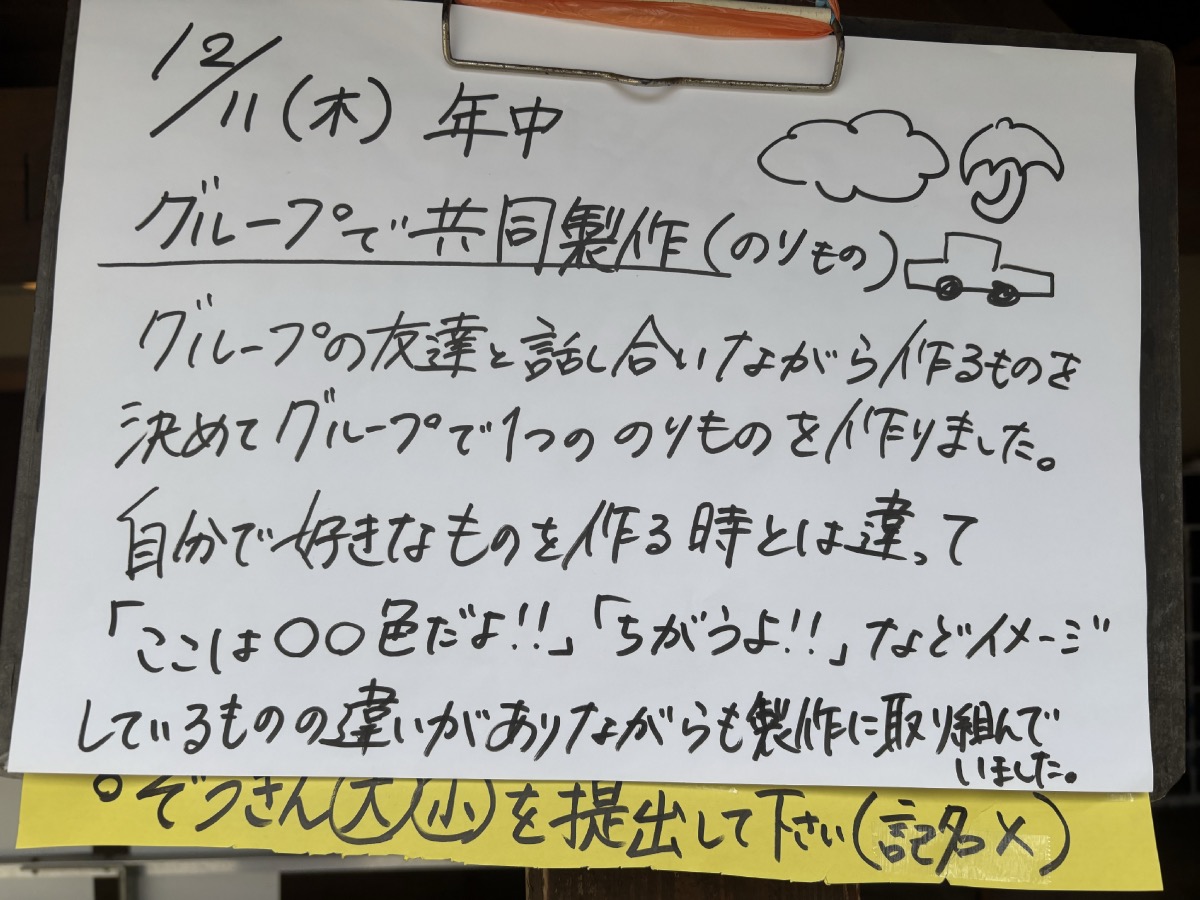 12/11(木) 年中
グループで共同製作(のりもの)
グループの友達と話し合いながら作るものを
決めてグループで1つの のりものを作りました。
自分で好きなものを作る時とは違って
「ここは〇〇色だよ!!」「ちがうよ!!」などイメージ
しているものの違いがありながらも製作に取り組んで
いました。
。ぞうさん(大)(小)を提出して下さい(記名×)